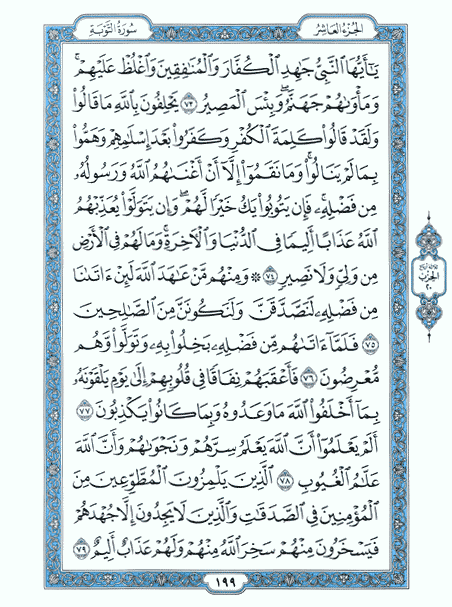 سُورَةُ التَّوْبَةِ
الجُزْءُ العَاشِرُ
يَٰٓأَيُّهَا ٱلنَّبِيُّ جَٰهِدِ ٱلْكُفَّارَ وَٱلْمُنَٰفِقِينَ وَٱغْلُظْ عَلَيْهِمْ ۚ
وَمَأْوَىٰهُمْ جَهَنَّمُ ۖ وَبِئْسَ ٱلْمَصِيرُ ٧٣ يَحْلِفُونَ بِٱللَّهِ مَا قَالُوا۟
وَلَقَدْ قَالُوا۟ كَلِمَةَ ٱلْكُفْرِ وَكَفَرُوا۟ بَعْدَ إِسْلَٰمِهِمْ وَهَمُّوا۟
بِمَا لَمْ يَنَالُوا۟ ۚ وَمَا نَقَمُوٓا۟ إِلَّآ أَنْ أَغْنَىٰهُمُ ٱللَّهُ وَرَسُولُهُۥ
مِن فَضْلِهِۦ ۚ فَإِن يَتُوبُوا۟ يَكُ خَيْرًا لَّهُمْ ۖ وَإِن يَتَوَلَّوْا۟ يُعَذِّبْهُمُ
ٱللَّهُ عَذَابًا أَلِيمًا فِي ٱلدُّنْيَا وَٱلْأَخِرَةِ ۚ وَمَا لَهُمْ فِي ٱلْأَرْضِ
مِن وَلِيٍّ وَلَا نَصِيرٍ ٧٤ ۞ وَمِنْهُم مَّنْ عَٰهَدَ ٱللَّهَ لَئِنْ ءَاتَىٰنَا
مِن فَضْلِهِۦ لَنَصَّدَّقَنَّ وَلَنَكُونَنَّ مِنَ ٱلصَّٰلِحِينَ
٧٥ فَلَمَّآ ءَاتَىٰهُم مِّن فَضْلِهِۦ بَخِلُوا۟ بِهِۦ وَتَوَلَّوا۟ وَّهُم
مُّعْرِضُونَ ٧٦ فَأَعْقَبَهُمْ نِفَاقًا فِي قُلُوبِهِمْ إِلَىٰ يَوْمِ يَلْقَوْنَهُۥ
بِمَآ أَخْلَفُوا۟ ٱللَّهَ مَا وَعَدُوهُ وَبِمَا كَانُوا۟ يَكْذِبُونَ ٧٧
أَلَمْ يَعْلَمُوٓا۟ أَنَّ ٱللَّهَ يَعْلَمُ سِرَّهُمْ وَنَجْوَىٰهُمْ وَأَنَّ ٱللَّهَ
عَلَّٰمُ ٱلْغُيُوبِ ٧٨ ٱلَّذِينَ يَلْمِزُونَ ٱلْمُطَّوِّعِينَ مِنَ
ٱلْمُؤْمِنِينَ فِي ٱلصَّدَقَٰتِ وَٱلَّذِينَ لَا يَجِدُونَ إِلَّا جُهْدَهُمْ
فَيَسْخَرُونَ مِنْهُمْ سَخِرَ ٱللَّهُ مِنْهُمْ وَلَهُمْ عَذَابٌ أَلِيمٌ ٧٩
الحزب
٢٠
١٩٩